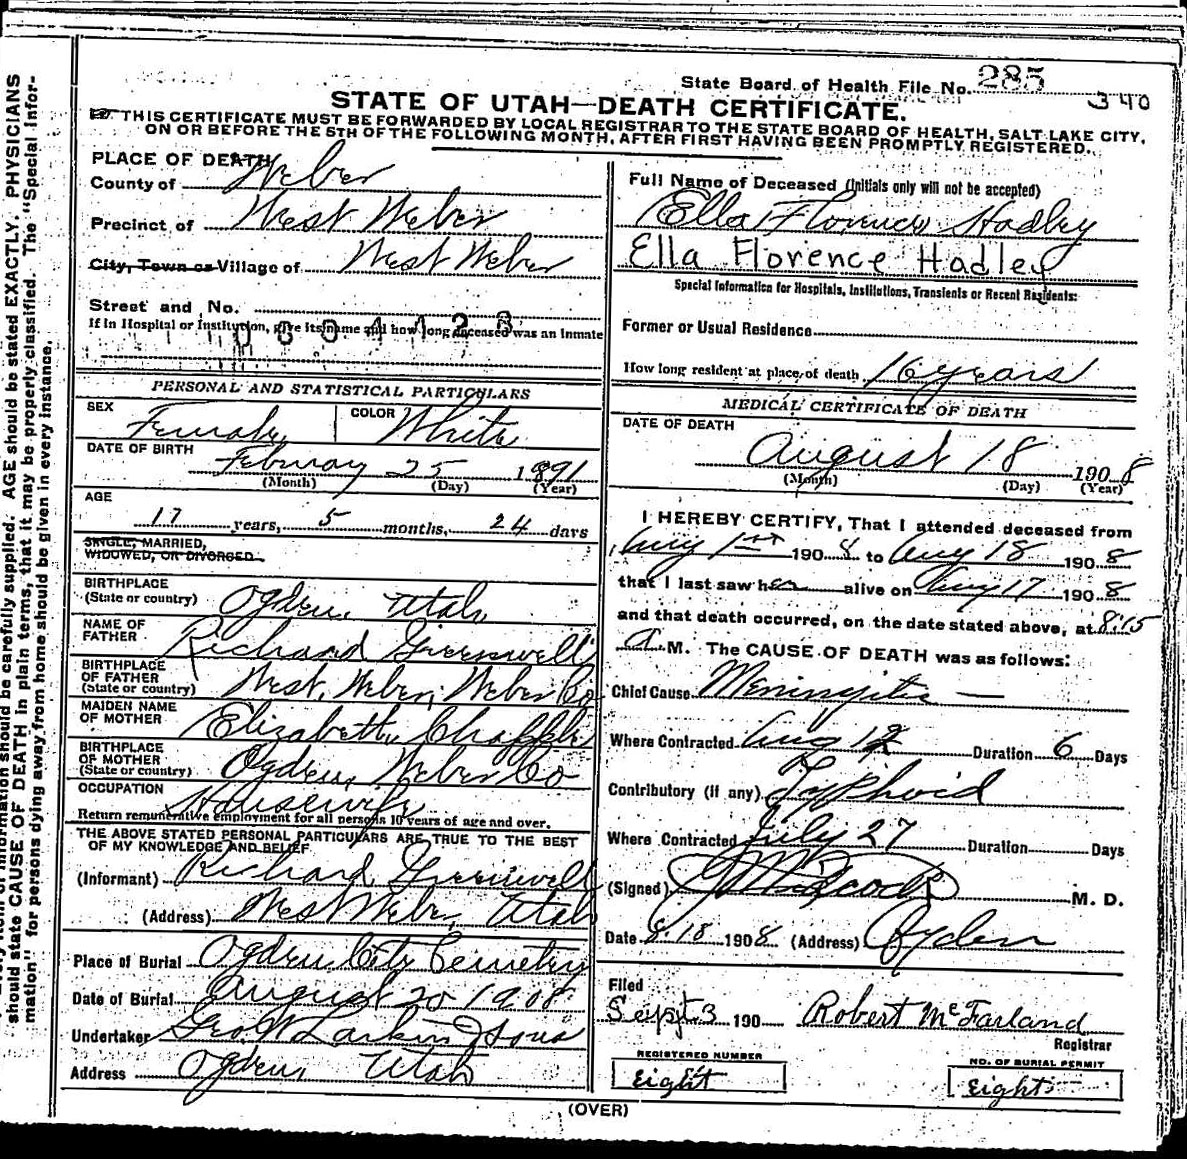 State Board of Health File No. 285
340
STATE OF UTAH—DEATH CERTIFICATE.
THIS CERTIFICATE MUST BE FORWARDED BY LOCAL REGISTRAR TO THE STATE BOARD OF HEALTH, SALT LAKE CITY,
ON OR BEFORE THE 5TH OF THE FOLLOWING MONTH, AFTER FIRST HAVING BEEN PROMPTLY REGISTERED.
PLACE OF DEATH
County of Weber
Precinct of West Weber
City, Town or Village of West Weber
Street and No.
If in Hospital or Institution, give its name and how long deceased was an inmate
PERSONAL AND STATISTICAL PARTICULARS
SEX Female COLOR White
DATE OF BIRTH February 25 1891
(Month) (Day) (Year)
AGE
17 years, 5 months, 24 days
SINGLE, MARRIED,
WIDOWED, OR DIVORCED
BIRTHPLACE
(State or country) Ogden, Utah
NAME OF
FATHER Richard Greenwell
BIRTHPLACE
OF FATHER
(State or country) West Weber, Weber Co
MAIDEN NAME
OF MOTHER Elizabeth
BIRTHPLACE
OF MOTHER
(State or country) Ogden, Weber Co
OCCUPATION Housewife
Return remunerative employment for all persons 10 years of age and over.
THE ABOVE STATED PERSONAL PARTICULARS ARE TRUE TO THE BEST
OF MY KNOWLEDGE AND BELIEF
(Informant) Richard Greenwell
(Address) West Weber, Utah
Place of Burial Ogden City Cemetery
Date of Burial August 20 1908
Undertaker Geo. W. Larkin & Sons
Address Ogden, Utah
Full Name of Deceased (Initials only will not be accepted)
Ella Florence Hadley
Ella Florence Hadley
Special Information for Hospitals, Institutions, Transients or Recent Residents:
Former or Usual Residence
How long resident at place of death 16 years
MEDICAL CERTIFICATE OF DEATH
DATE OF DEATH
August 18 1908
(Month) (Day) (Year)
I HEREBY CERTIFY, That I attended deceased from
Aug 1st 1908 to Aug 18 1908
that I last saw her alive on Aug 17 1908
and that death occurred, on the date stated above, at 8:15
A.M. The CAUSE OF DEATH was as follows:
Chief Cause Meningitis
Where Contracted Aug 12 Duration 6 Days
Contributory (if any) Typhoid
Where Contracted July 27 Duration Days
(Signed) M. D.
Date 8.18 1908 (Address) Ogden
Filed
Sept 3 190 Robert McFarland
Registrar
REGISTERED NUMBER
Eight
NO. OF BURIAL PERMIT
Eight
(OVER)
should be carefully supplied. AGE should be stated EXACTLY. PHYSICIANS
should state CAUSE OF DEATH in plain terms, that it may be properly classified. The "Special Infor-
mation" for persons dying away from home should be given in every instance.